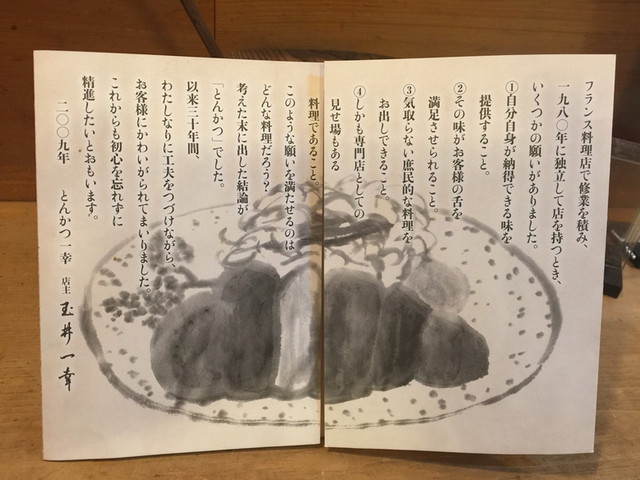 フランス料理店で修業を積み、
一九八〇年に独立して店を持つとき、
いくつかの願いがありました。
①自分自身が納得できる味を
提供すること。
②その味がお客様の舌を
満足させられること。
③気取らない庶民的な料理を
お出しできること。
④しかも専門店としての
見せ場もある
料理であること。
このような願いを満たせるのは
どんな料理だろう?
考えた末に出した結論が
「とんかつ」でした。
以来三十年間、
わたしなりに工夫をつづけながら、
お客様にかわいがられてまいりました。
これからも初心を忘れずに
精進したいとおもいます。
二〇〇九年 とんかつ一幸 店主 玉井一幸